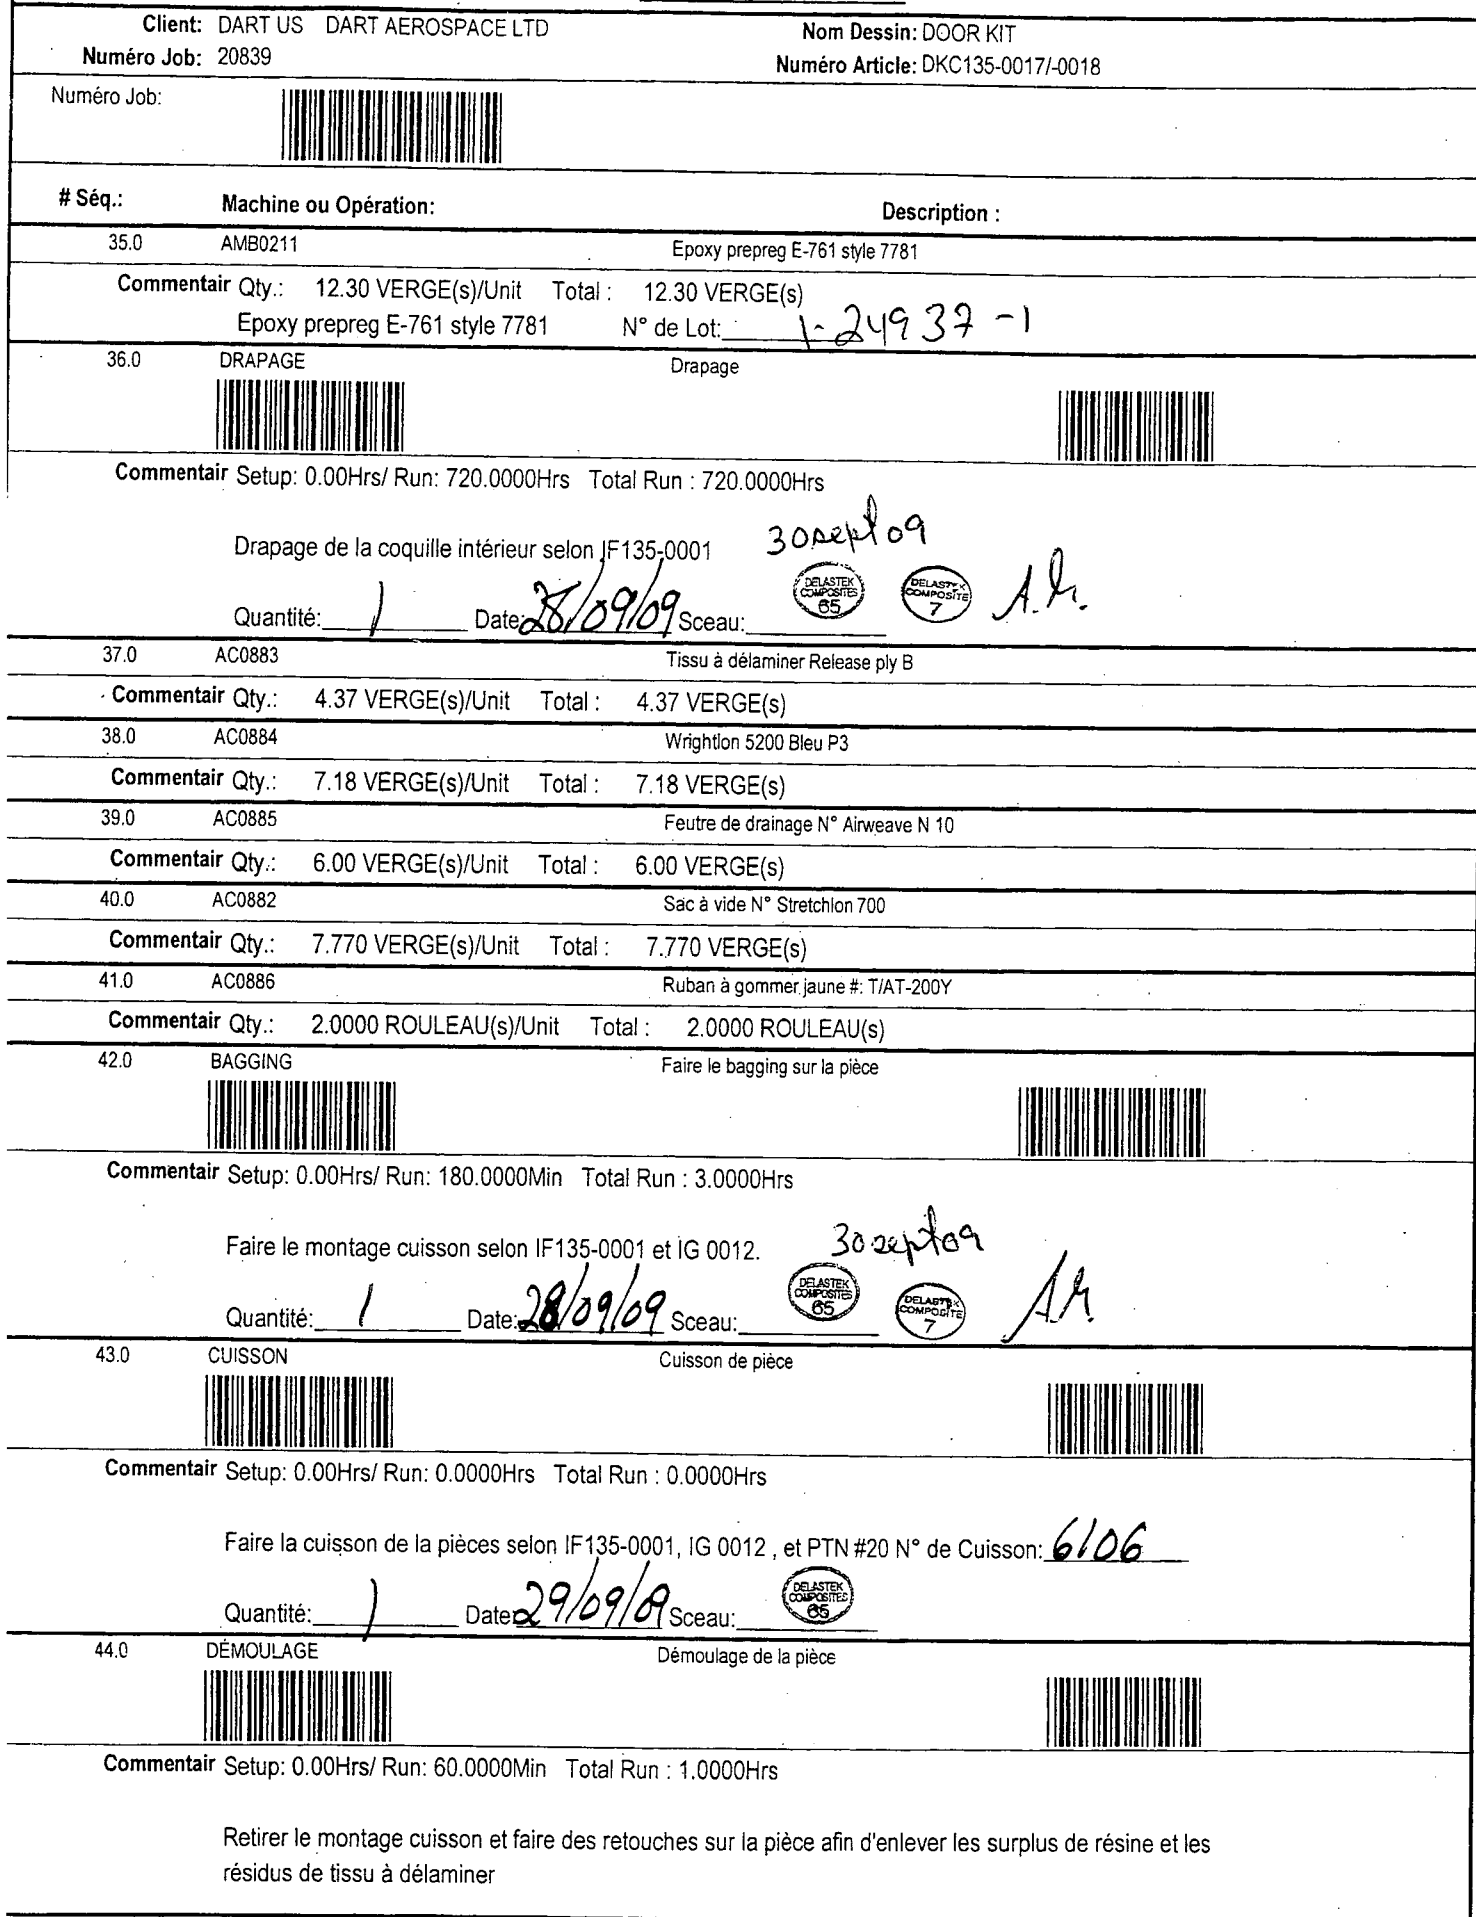 Client: DART US DART AEROSPACE LTD
Nom Dessin: DOOR KIT
Numéro Job: 20839
Numéro Article: DKC135-0017/-0018
Numéro Job:
# Séq.: Machine ou Opération: Description :
35.0 AMB0211 Epoxy prepreg E-761 style 7781
Commentair Qty.: 12.30 VERGE(s)/Unit Total : 12.30 VERGE(s)
Epoxy prepreg E-761 style 7781 N° de Lot: 1-24937-1
36.0 DRAPAGE Drapage
Commentair Setup: 0.00Hrs/ Run: 720.0000Hrs Total Run : 720.0000Hrs
30 sept 09
Drapage de la coquille intérieur selon IF135-0001
DELASTEK COMPOSITES 65
DELASTEK COMPOSITE 7
Quantité: 1 Date: 28/09/09 Sceau:
37.0 AC0883 Tissu à délaminer Release ply B
Commentair Qty.: 4.37 VERGE(s)/Unit Total : 4.37 VERGE(s)
38.0 AC0884 Wrightlon 5200 Bleu P3
Commentair Qty.: 7.18 VERGE(s)/Unit Total : 7.18 VERGE(s)
39.0 AC0885 Feutre de drainage N° Airweave N 10
Commentair Qty.: 6.00 VERGE(s)/Unit Total : 6.00 VERGE(s)
40.0 AC0882 Sac à vide N° Stretchlon 700
Commentair Qty.: 7.770 VERGE(s)/Unit Total : 7.770 VERGE(s)
41.0 AC0886 Ruban à gommer jaune #: T/AT-200Y
Commentair Qty.: 2.0000 ROULEAU(s)/Unit Total : 2.0000 ROULEAU(s)
42.0 BAGGING Faire le bagging sur la pièce
Commentair Setup: 0.00Hrs/ Run: 180.0000Min Total Run : 3.0000Hrs
30 sept 09
Faire le montage cuisson selon IF135-0001 et IG 0012.
DELASTEK COMPOSITES 65
DELASTEK COMPOSITE 7
Quantité: 1 Date: 28/09/09 Sceau:
43.0 CUISSON Cuisson de pièce
Commentair Setup: 0.00Hrs/ Run: 0.0000Hrs Total Run : 0.0000Hrs
Faire la cuisson de la pièces selon IF135-0001, IG 0012 , et PTN #20 N° de Cuisson: 6106
DELASTEK COMPOSITES 65
Quantité: 1 Date: 29/09/09 Sceau:
44.0 DÉMOULAGE Démoulage de la pièce
Commentair Setup: 0.00Hrs/ Run: 60.0000Min Total Run : 1.0000Hrs
Retirer le montage cuisson et faire des retouches sur la pièce afin d'enlever les surplus de résine et les
résidus de tissu à délaminer